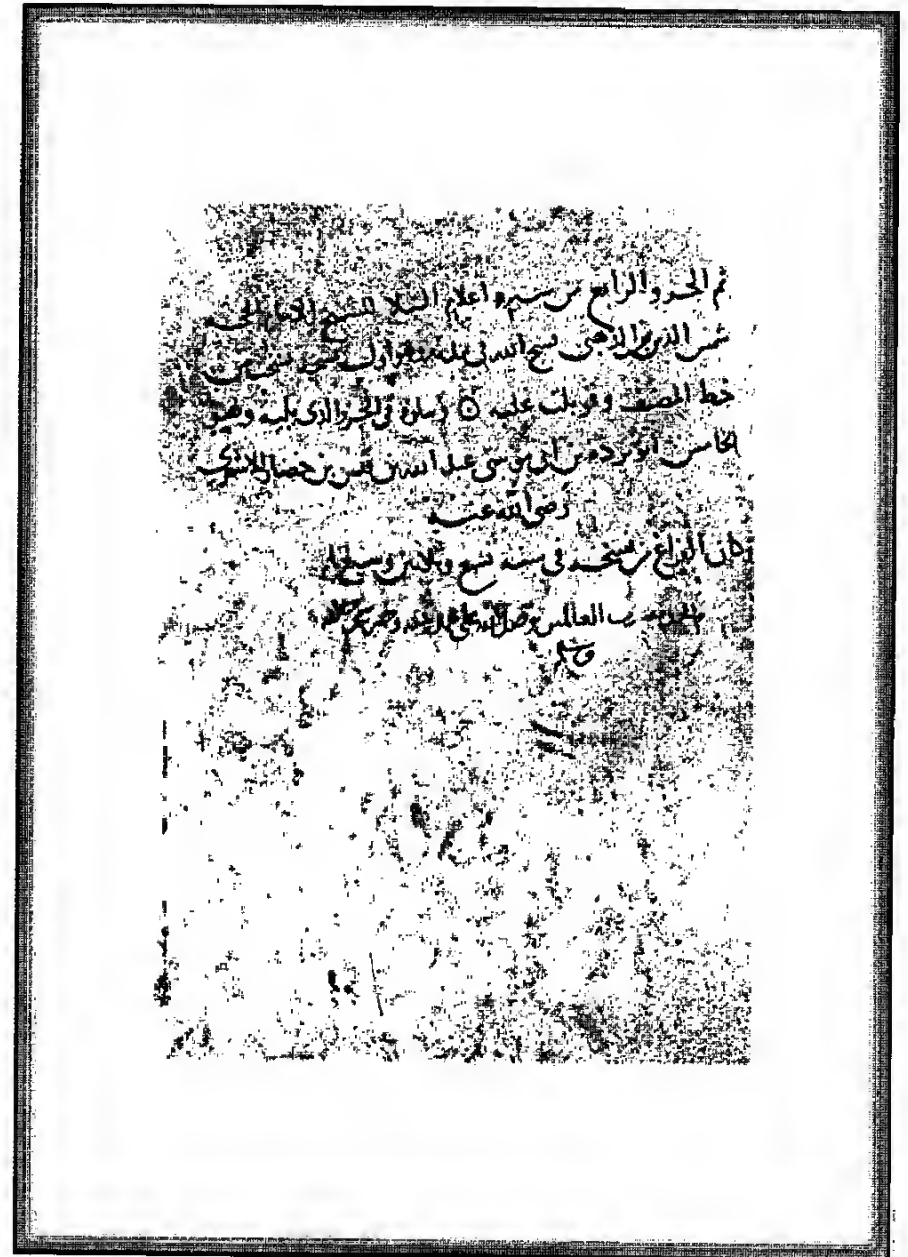 تم الجزو الرابع من سير اعلام النبلا للشيخ الامام الحجه
شمس الدين الذهبى فسح الله فى مدته وهو اول نسخه نسخت من
خط المصنف وقوبلت عليه ه يتلوه فى الجزو الذى يليه وهو
الخامس ابو بردة بن ابى موسى عبد الله بن قيس بن حضار الاشعرى
رضى الله عنه
كان الفراغ من نسخه فى سنه تسع وثلاثين وسبع مايه
والحمد لله رب العالمين وصلى الله على محمد وصحبه
وسلم